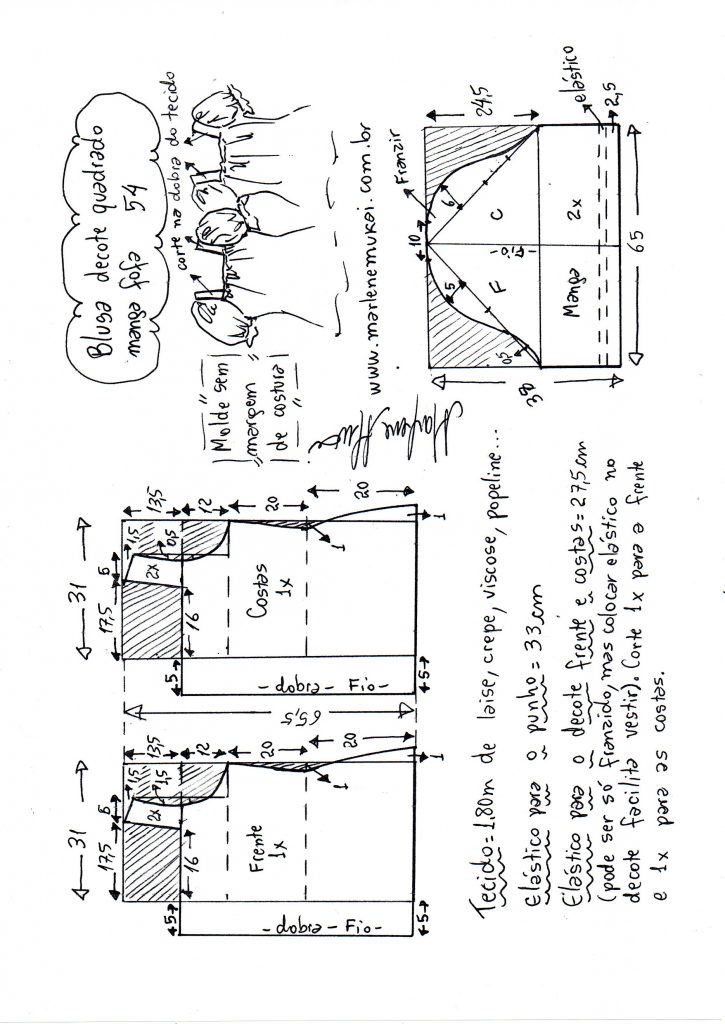 Blusa decote quadrado
manga fofa 54
corte na dobra do tecido
"Molde sem"
"margem"
"de costura"
Marlene Mukai
www.marlenemukai.com.br
31
17,5
5
1,5
13,5
2x
1,5
16
12
5
Frente
1x
20
1
20
-dobra- Fio-
5
1
65,5
31
17,5
5
1,5
13,5
2x
0,5
16
12
5
Costas
1x
20
1
20
-dobra- Fio-
5
1
10
Franzir
24,5
38
5
6
0,5
F
C
-Fio-
Manga
2x
elástico
2,5
65
Tecido=1,80m de laise, crepe, viscose, popeline...
Elástico para o punho = 33cm
Elástico para o decote frente e costas=27,5cm
(pode ser só franzido, mas colocar elástico no
decote facilita vestir). Corte 1x para a frente
e 1x para as costas.